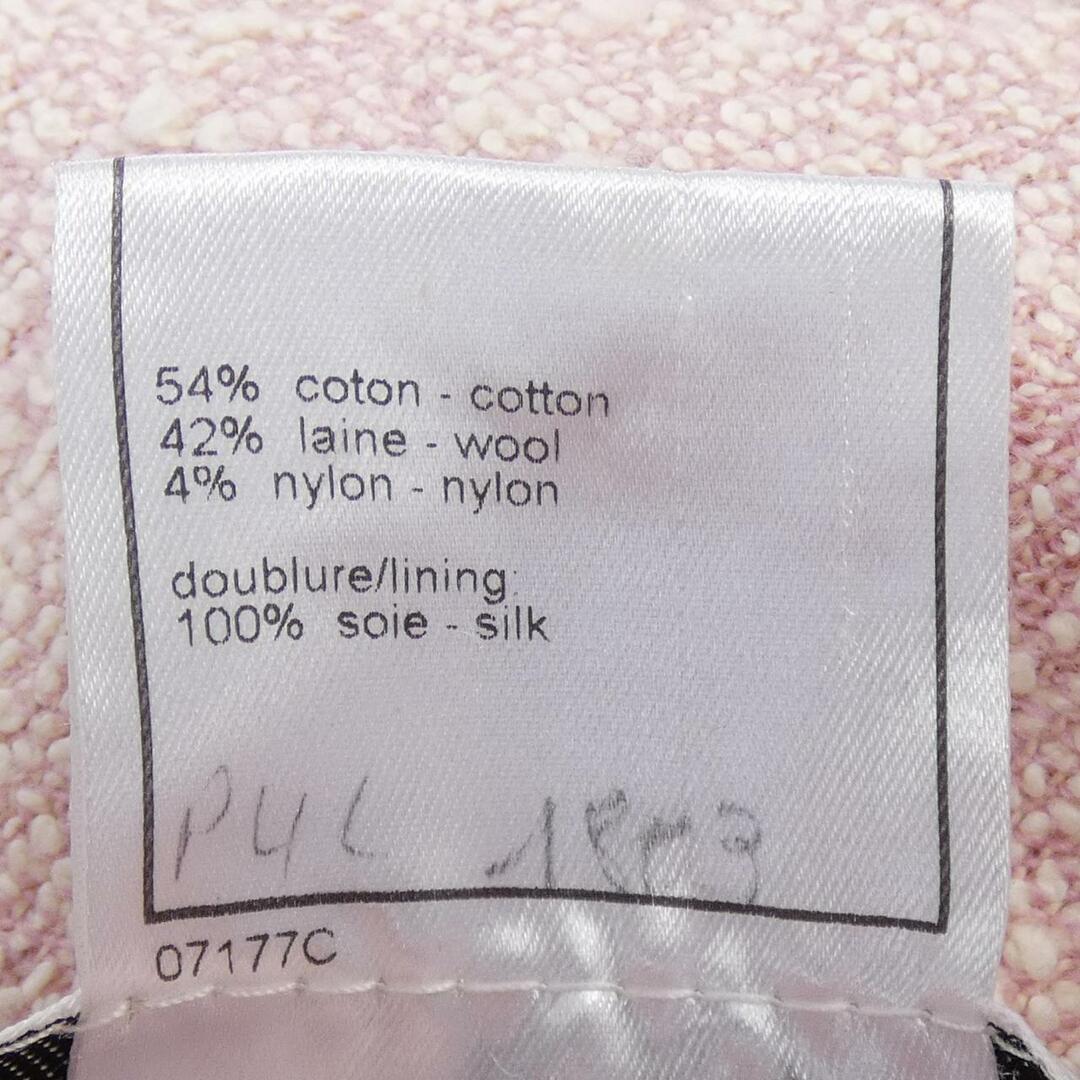 54% coton - cotton
42% laine - wool
4% nylon - nylon
doublure/lining:
100% soie - silk
P4L
07177C